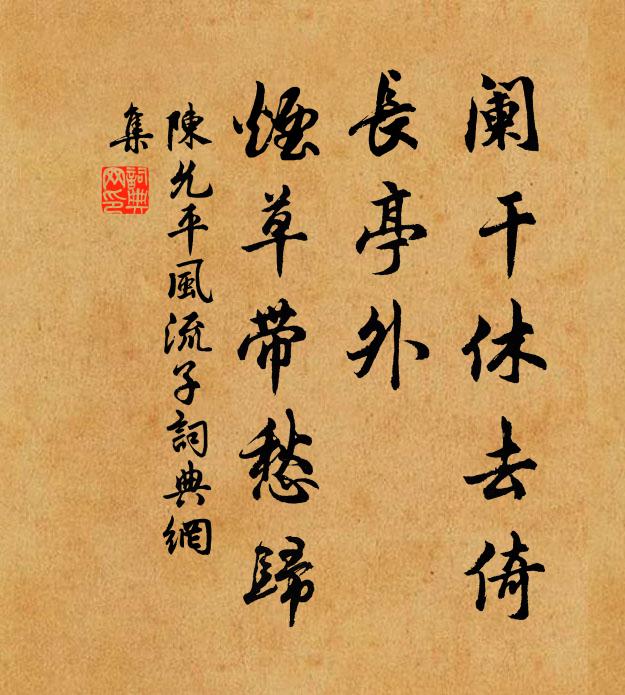 阑干休去倚
長亭外
煙草带愁歸
陳允平風流子詞典網
集
詞典
网印